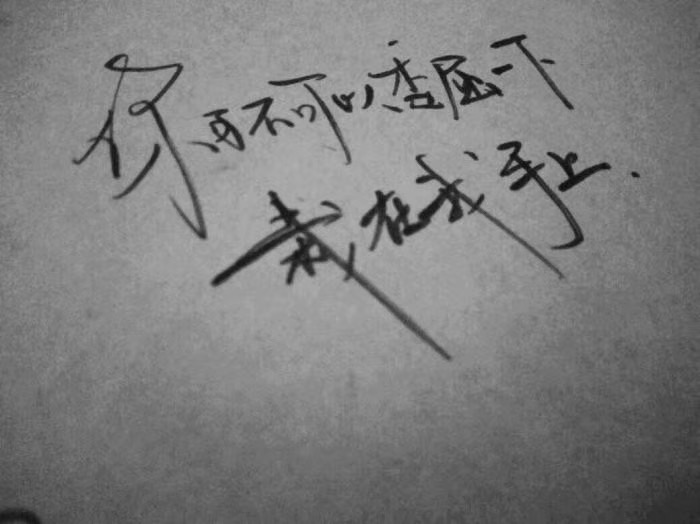 你可不可以委屈一下
栽在我手上.